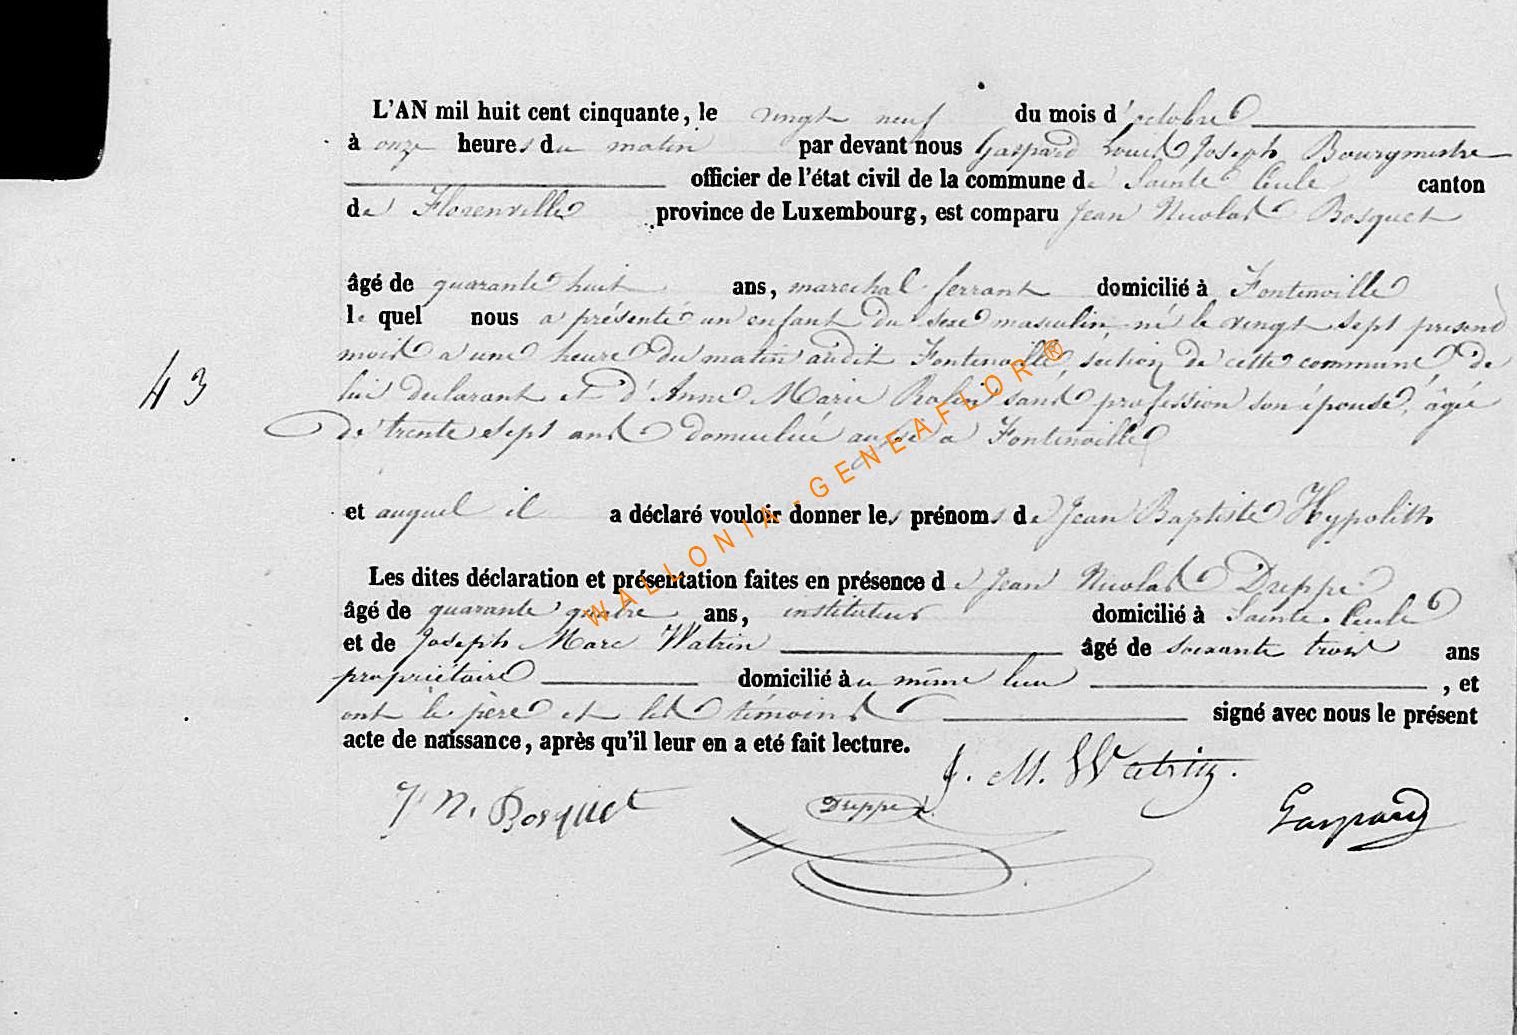 L'AN mil huit cent cinquante, le vingt neuf du mois d'octobre
à onze heures du matin par devant nous Gaspard Louis Joseph Bourgmestre
officier de l'état civil de la commune de Sainte Cécile canton
de Florenville province de Luxembourg, est comparu Jean Nicolas Bosquet
âgé de quarante huit ans, marechal ferrant domicilié à Fontenoille
le quel nous a présenté un enfant du sexe masculin, né le vingt sept present
mois a une heure du matin audit Fontenoille, section de cette commune, de
43
lui declarant et d'Anne Marie sans profession son épouse, âgée
de trente sept ans domiciliée aussi a Fontenoille
et auquel il a déclaré vouloir donner les prénoms de Jean Baptiste Hypolith
Les dites déclaration et présentation faites en présence de Jean Nicolas Dreppe
âgé de quarante quatre ans, instituteur domicilié à Sainte Cécile
et de Joseph Marc Watrin âgé de soixante trois ans
propriétaire domicilié au même lieu , et
ont le père et les témoins signé avec nous le présent
acte de naissance, après qu'il leur en a eté fait lecture.
J. M. Watrin.
J N. Bosquet Dreppe Gaspard
WALLONIA - GENEAFLOR ®